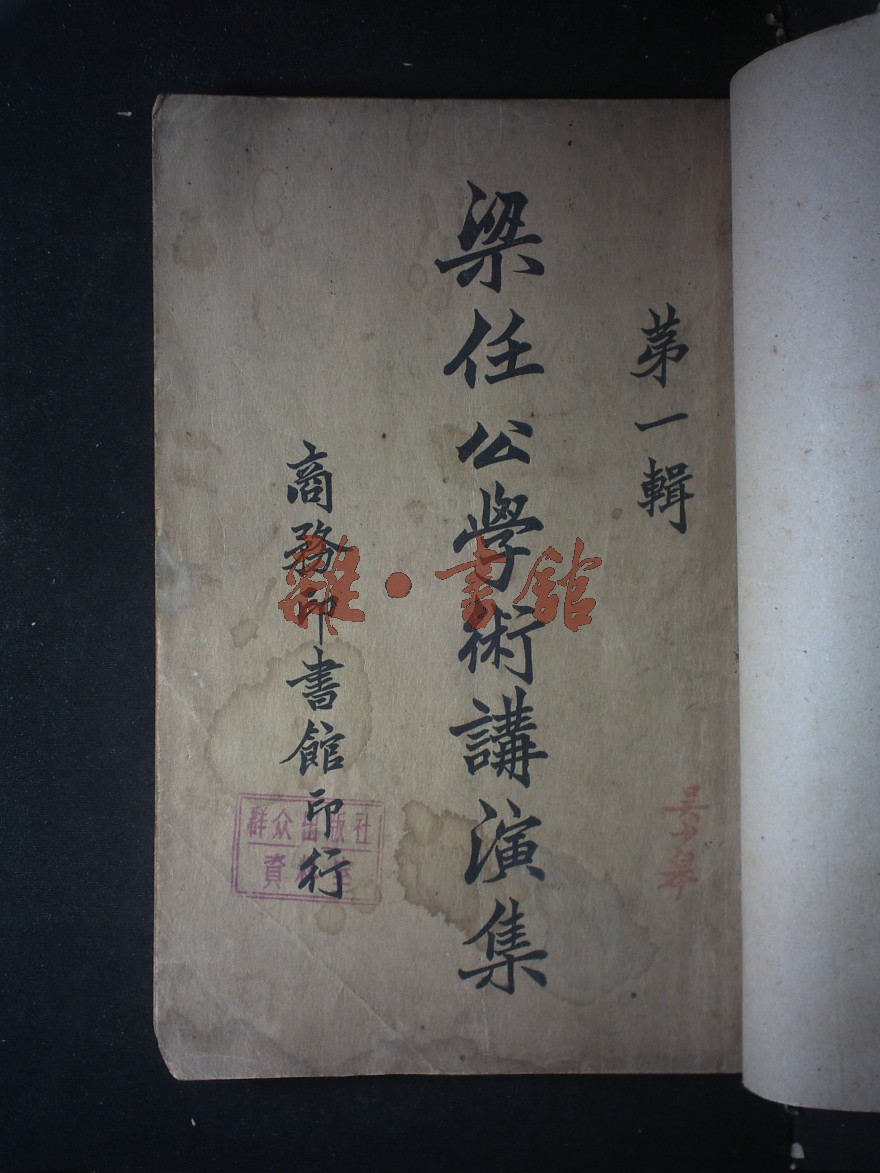 第一輯
梁任公學術講演集
商務印書館印行
群众出版社
資料室
雜·書館